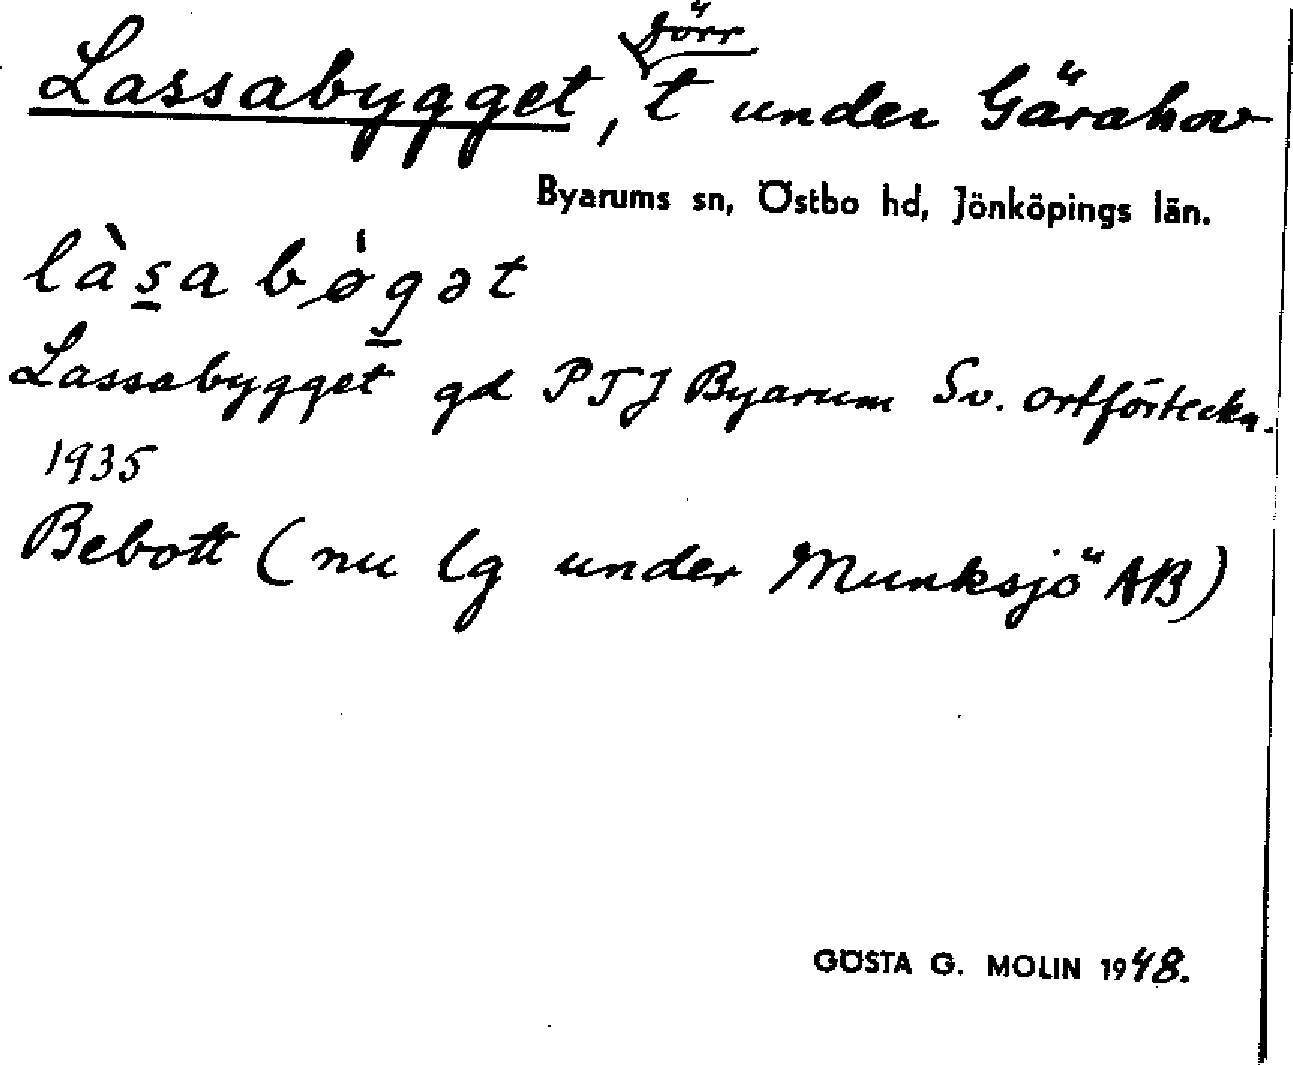 Lassabygget, förr t under Gärahov
Byarums sn, Östbo hd, Jönköpings län.
làsa bøgət
Lassabygget gd PTJ Byarum Sv. ortförteckn.
1935
Bebott (nu lg under Munksjö AB)
GÖSTA G. MOLIN 1948.